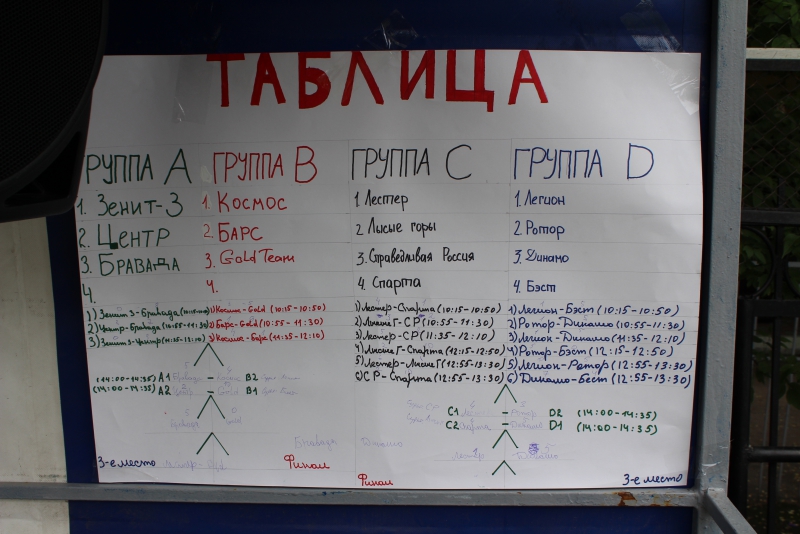 ТАБЛИЦА
РУППА A
1. Зенит-3
2. Центр
3. БРАВАДА
4.
1) Зенит 3-Бравада (10:15-10:50)
2) Центр-Бравада (10:55-11:30)
3) Зенит 3-Центр (11:35-12:10)
ГРУППА B
1. Космос
2. БАРС
3. Gold Team
4.
1) Космос-Gold (10:15-10:50)
2) Барс-Gold (10:55-11:30)
3) Космос-Барс (11:35-12:10)
ГРУППА C
1 Лестер
2 Лысые горы
3. Справедливая Россия
4. Спарта
1) Лестер-Спарта (10:15-10:50)
2) Лысые Г-СР (10:55-11:30)
3) Лестер-СР (11:35-12:10)
4) Лысые Г-Спарта (12:15-12:50)
5) Лестер-Лысые Г (12:55-13:30)
6) СР-Спарта (12:55-13:30)
ГРУППА D
1. Легион
2. Ротор
3. Динамо
4. Бэст
1) Легион-Бэст (10:15-10:50)
2) Ротор-Динамо (10:55-11:30)
3) Легион-Динамо (11:35-12:10)
4) Ротор-Бэст (12:15-12:50)
5) Легион-Ротор (12:55-13:30)
6) Динамо-Бест (12:55-13:30)
(14:00-14:35) A1 - B2
(14:00-14:35) A2 - B1
C1 - D2 (14:00-14:35)
C2 Спарта - D1 (14:00-14:35)
Бравада Динамо
Лестер Динамо
3-е место Финал
Финал 3-е место